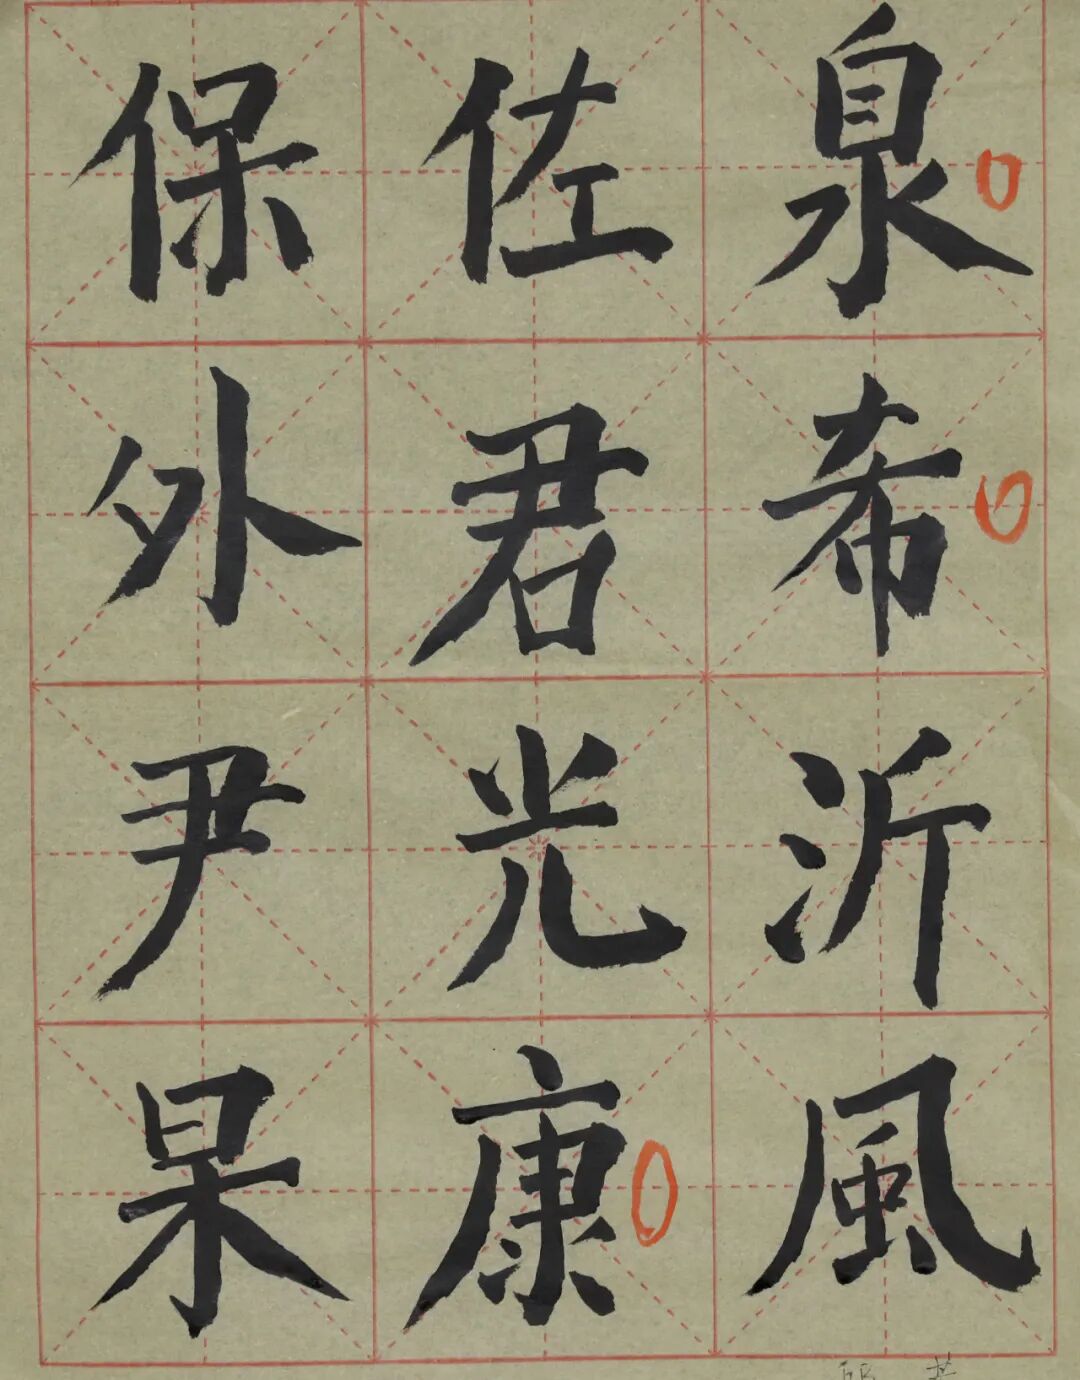 泉希沂風
佐君光康
保外尹杲